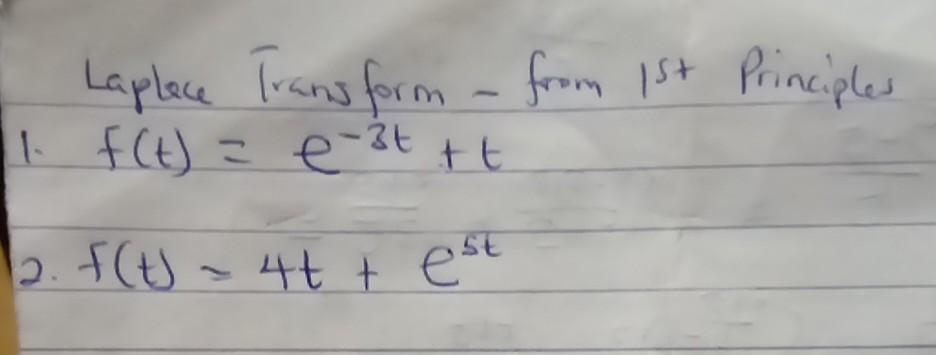 Laplace Transform - from 1st Principles
1. f(t) = e^-3t + t
2. f(t) = 4t + e^5t